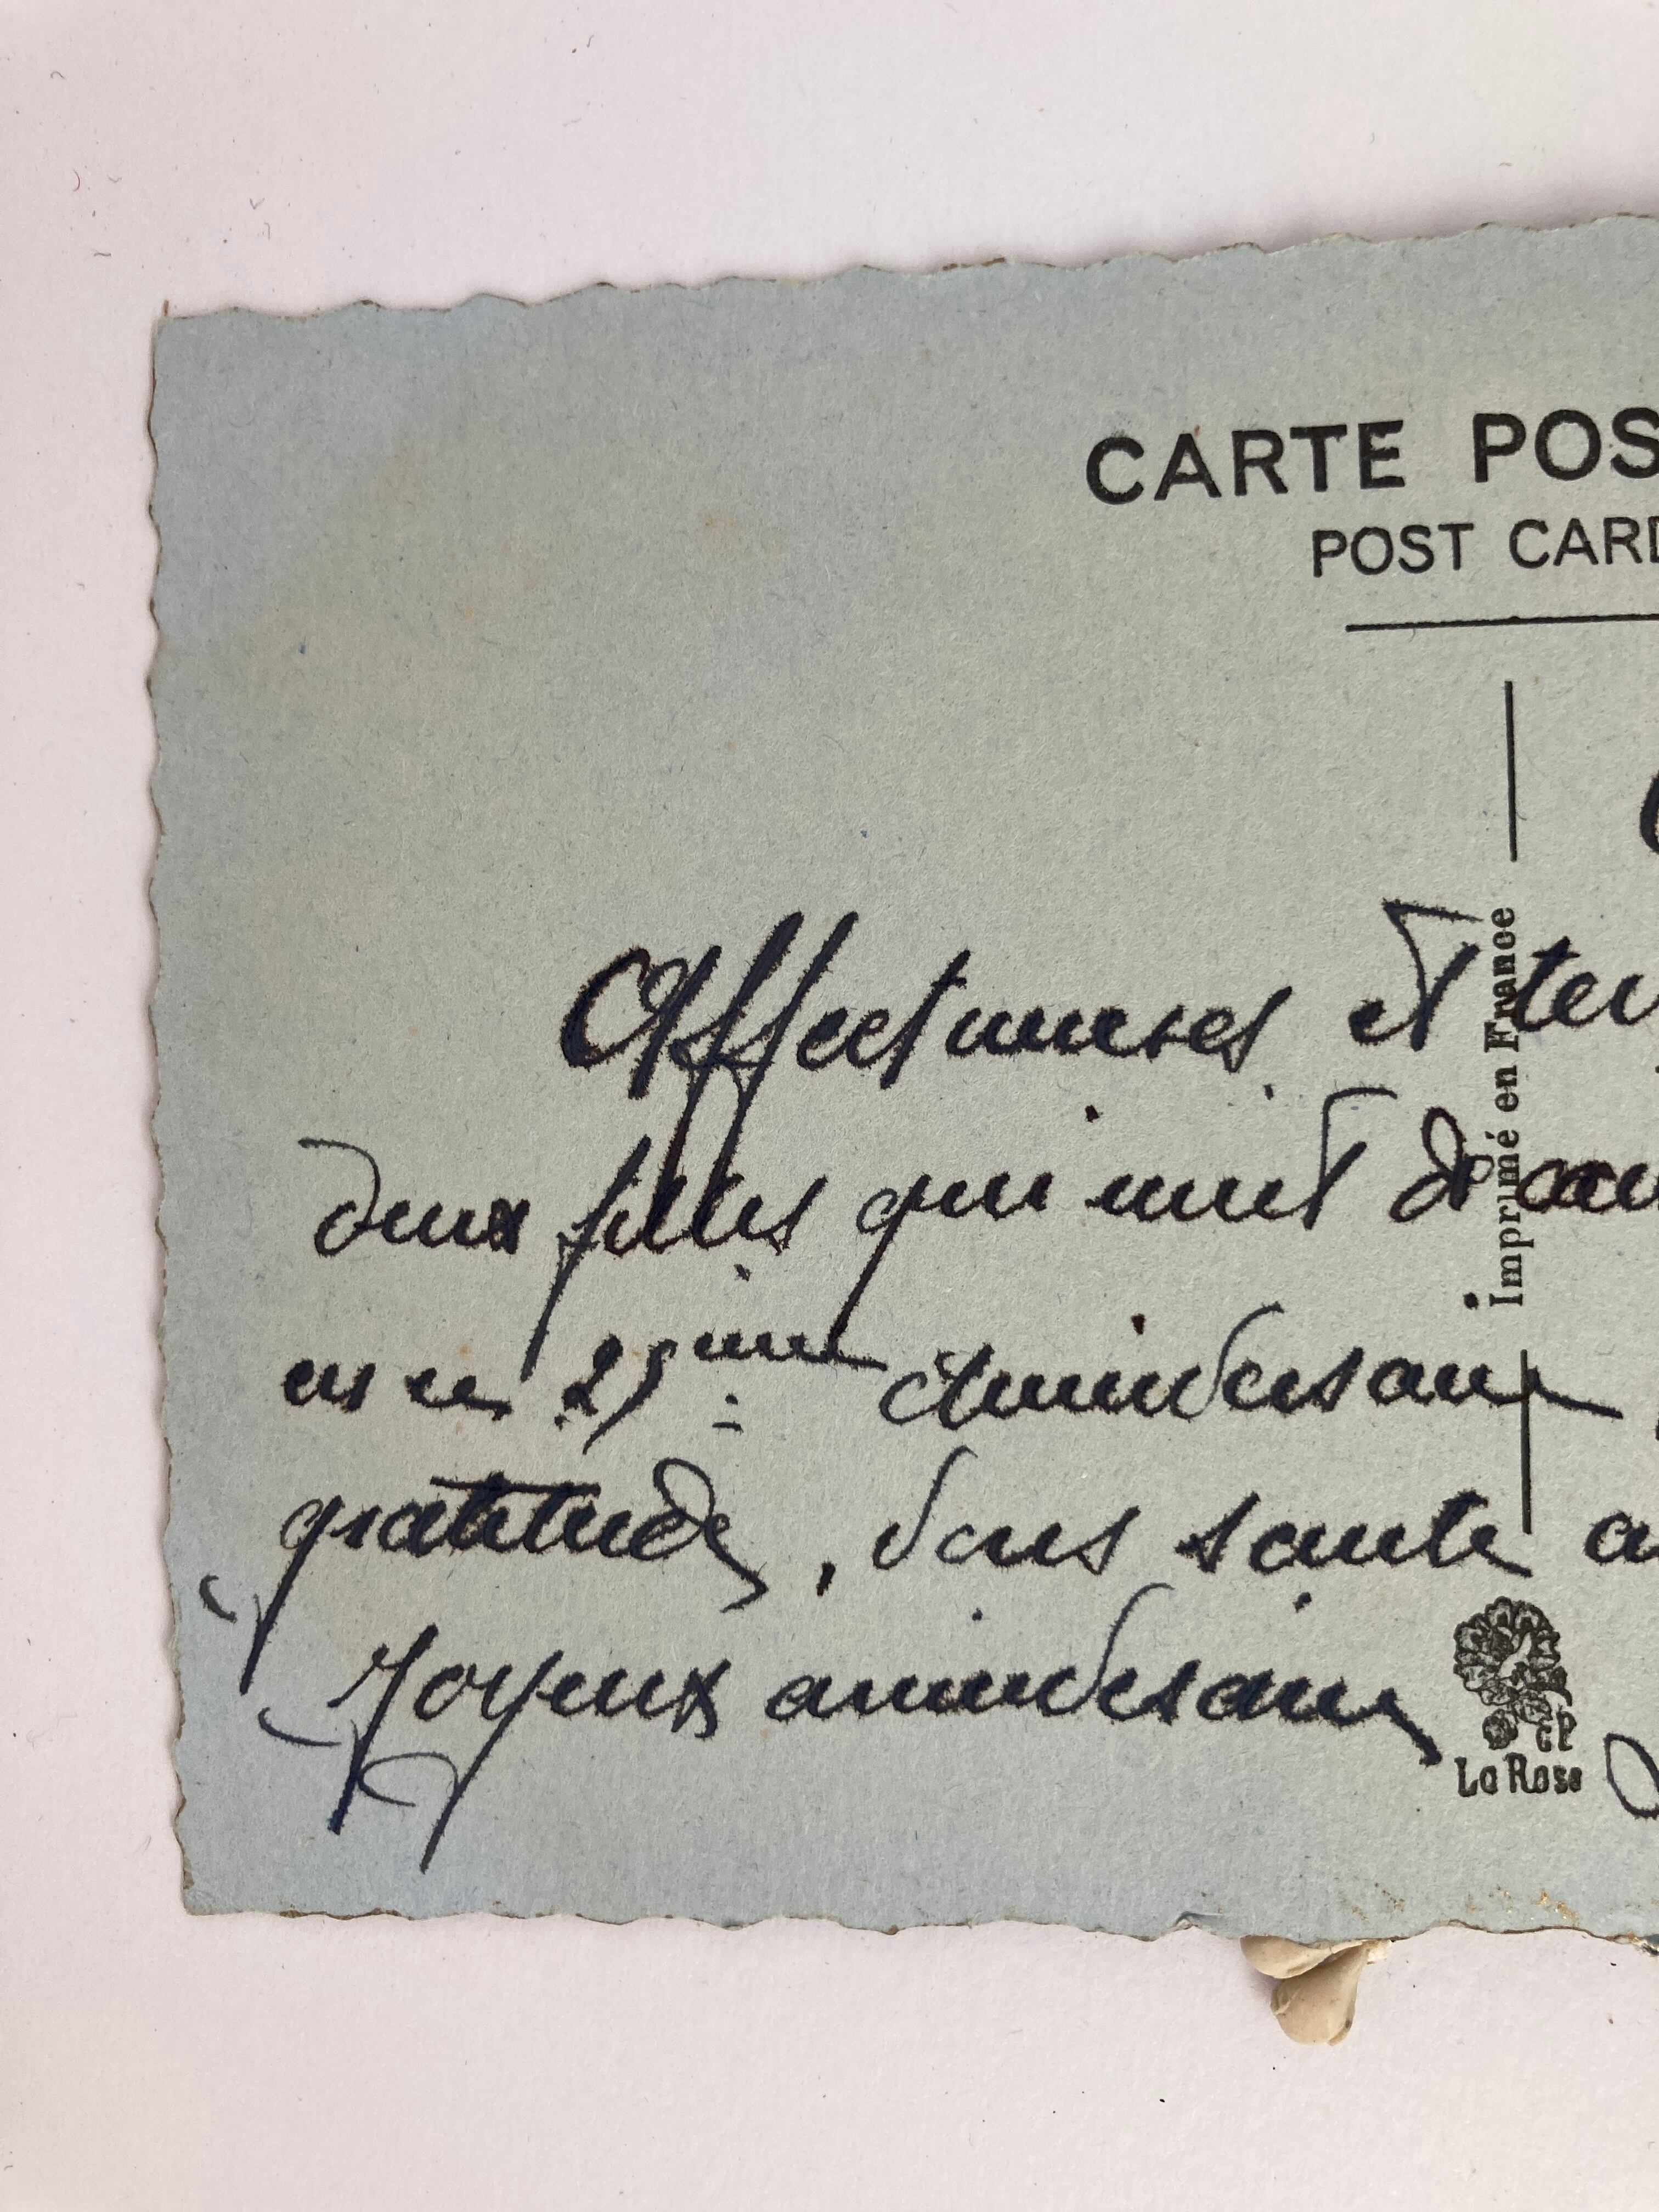 CARTE POS
POST CARD
Imprimé en France
Affectueuses et ten
deux filles qui ont
en ce 25ème Anniversaire
gratitude, Vous souhaite
Joyeux anniversaire
GP
La Rose